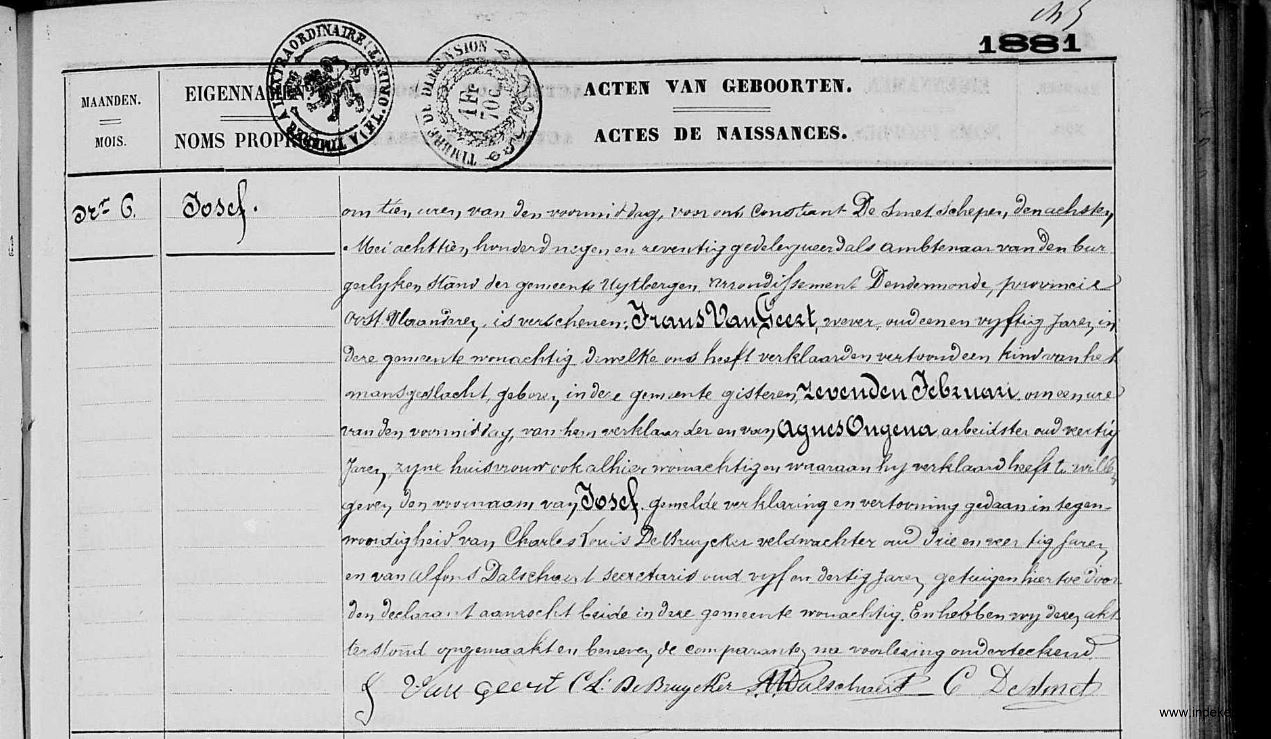 1881
TIMBRE A L'EXTRAORDINAIRE
TIMBRE DE DIMENSION
1 Fr 70 C
MAANDEN.
MOIS.
EIGENNA
NOMS PROPR
ACTEN VAN GEBOORTEN.
ACTES DE NAISSANCES.
Nr 6.
Josef.
om tien uren van den voormiddag, voor ons Constant De Smet schepen, den achsten
Mei achttien honderd negen en zeventig gedelegueerd als ambtenaar van den bur
gerlyken stand der gemeente Uytbergen, arrondissement Dendermonde, provincie
Oost Vlaanderen, is verschenen; Frans Van Geert, wever, oud een en vyftig Jaren, in
deze gemeente wonachtig, dewelke ons heeft verklaard en vertoond een kind van het
mansgeslacht, geboren in deze gemeente gisteren, zevenden Februari, om een ure
van den voormiddag, van hem verklaarder en van Agnes Ongena, arbeidster oud veertig
Jaren, zyne huisvrouw ook alhier wonachtig en waaraan hy verklaard heeft te willen
geven den voornaam van Josef. gemelde verklaring en vertooning gedaan in tegen-
woordigheid van Charles Louis De Bruycker veldwachter oud drie en veertig Jaren
en van Alfons Dalschaert secretaris oud vyf en dertig Jaren, getuigen hiertoe door
den declarant aanzocht beide in deze gemeente wonachtig. En hebben wy dezen akt
terstond opgemaakt en beneven de comparanten na voorlezing onderteekend.
f Van geert C L. De Bruycker A Dalschaert C De Smet
www.indeke